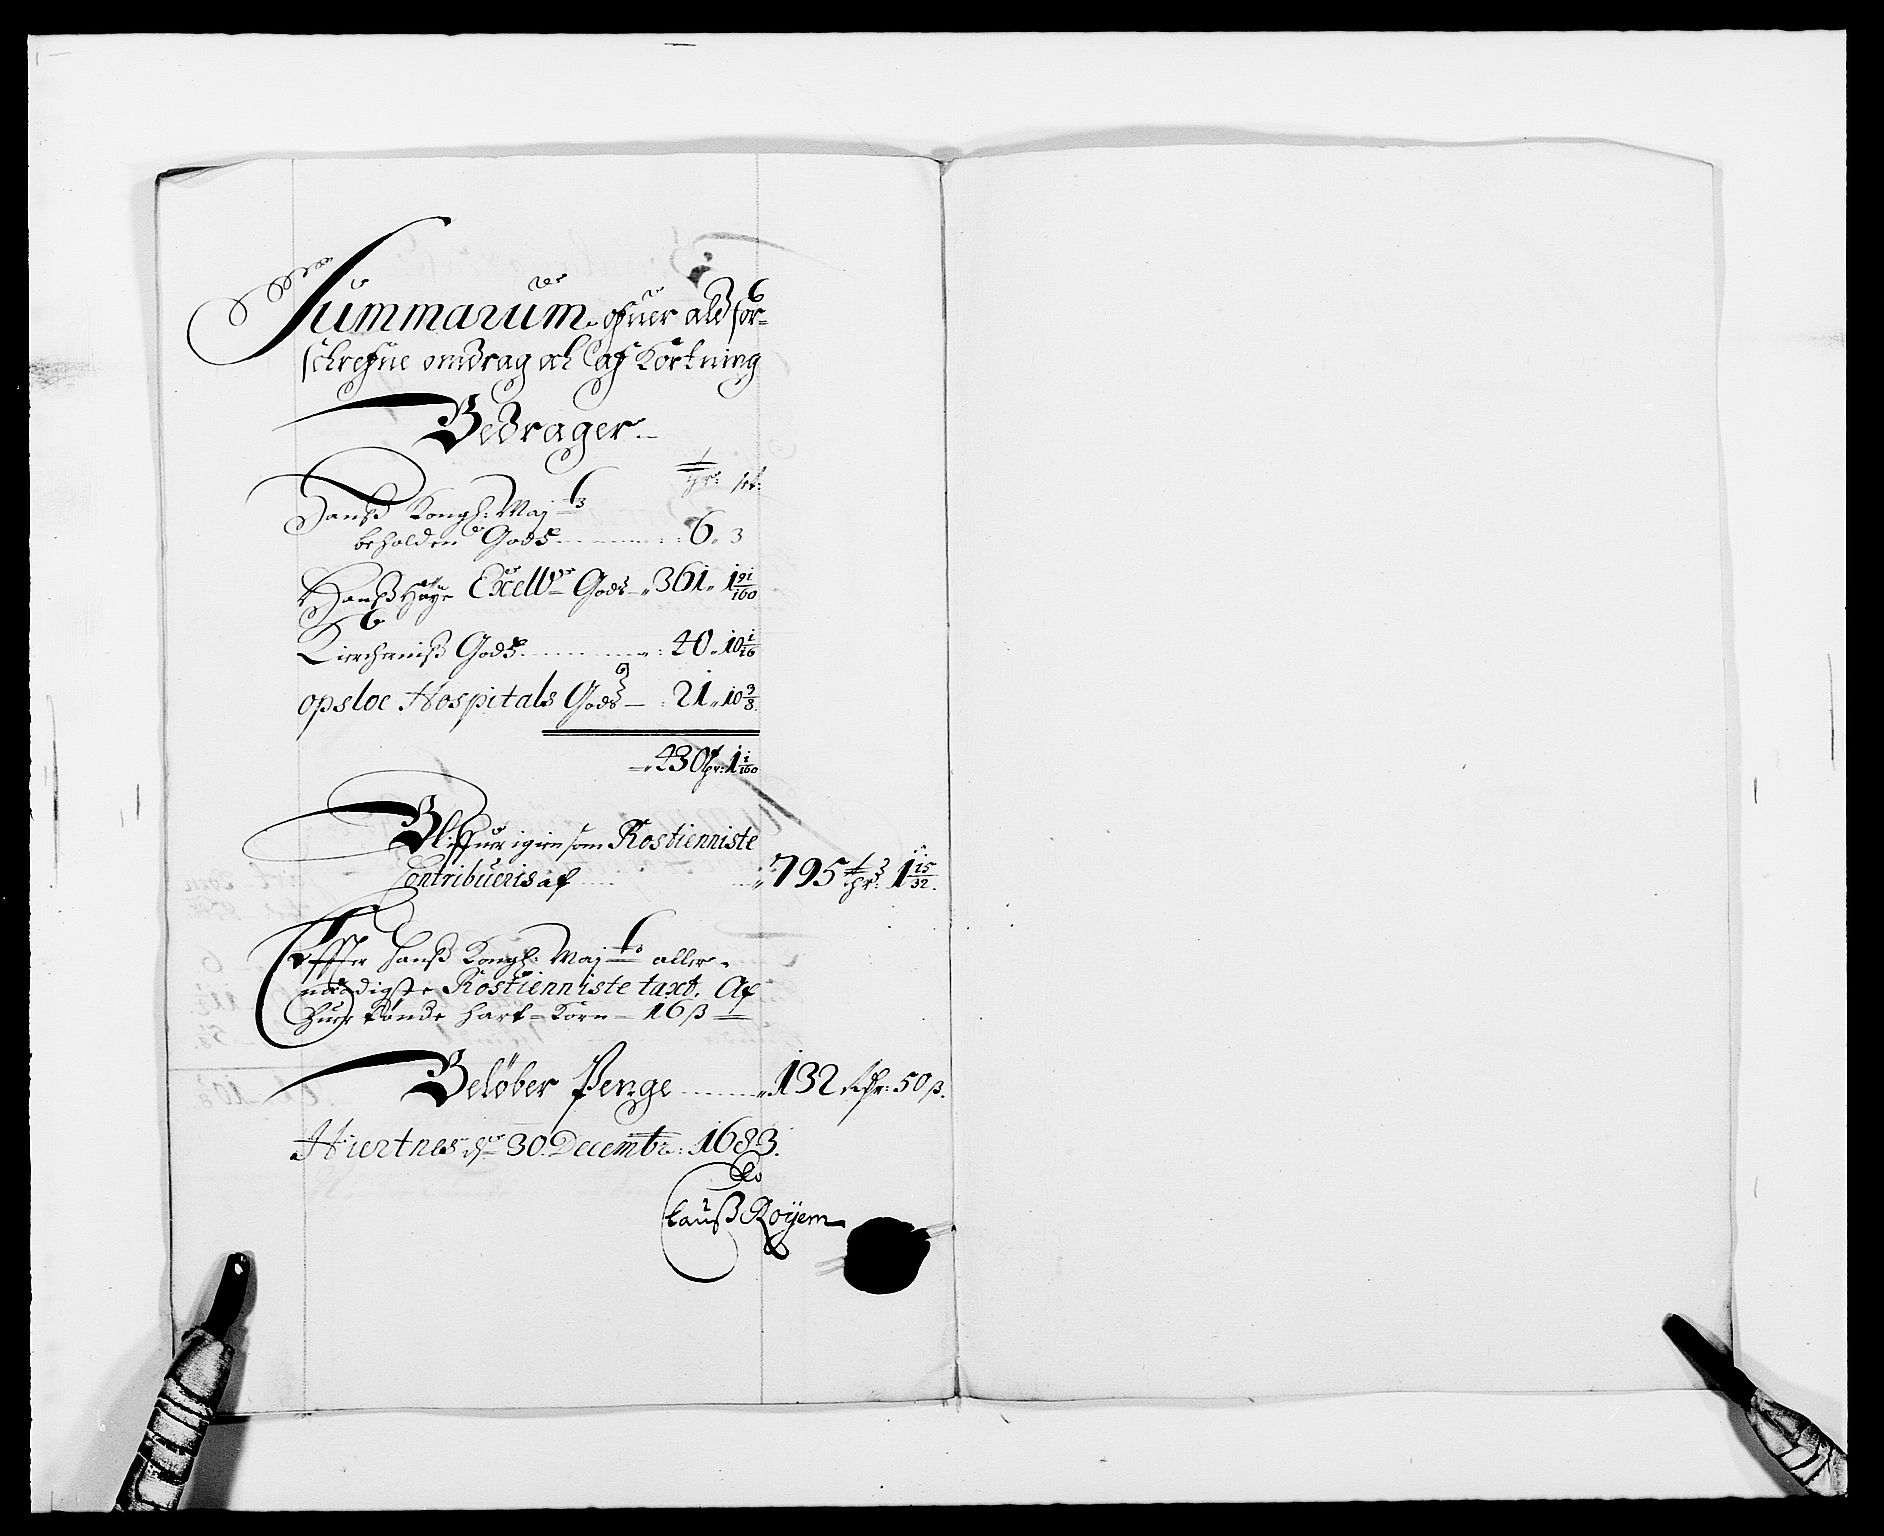 Summarum ofuer ald for-
schrefne omdrag och afKortning
Bedrager.
thr: set:
Hanß Kongl: Maj ts
beholden Gods ........ 6 „ 3
Hanß Høye Excell ce Gods „ 361 „ 1 91/160
Kircherniß Gods ........ 40 „ 10 1/16
opsloe Hospitals Gods — 21 „ 10 3/8
„ 430 thr: 1 1/160
Blifuer igien som Rostienniste
Contribueris af .... „ 795 thr: 1 15/32.
Effter Hanß Kongl: Maj ts aller-
naadigste Rostienniste taxt. Af
huer tønde hart-Korn — 16 ß
Beløber Penge ...... „ 132 Rdr: 50 ß.
Hiertnes dn 30. Decembr: 1683.
Clauß Røyem